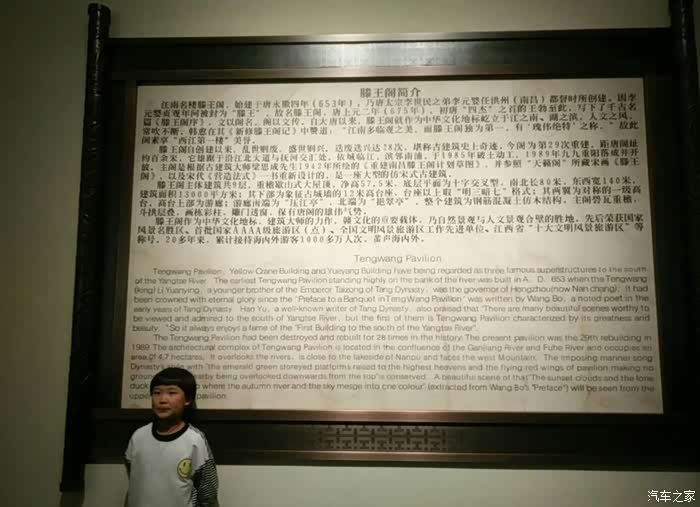 滕王阁简介
江南名楼滕王阁，始建于唐永徽四年（653年），乃唐太宗李世民之弟李元婴任洪州（南昌）都督时所创建。因李
元婴贞观年间被封为“滕王”，故名滕王阁。唐上元二年（675年），初唐“四杰”之首的王勃至此，写下了千古名
篇《滕王阁序》，文以阁名，阁以文传。自大唐以来，滕王阁就作为中华文化地标屹立于江之南、湖之滨，人文之风，
常吹不断。韩愈在其《新修滕王阁记》中赞道：“江南多临观之美，而滕王阁独为第一，有‘瑰伟绝特’之称。”故此
阁素享“西江第一楼”美誉。
滕王阁自创建以来，乱世则废，盛世则兴，迭废迭兴达28次，堪称古建筑史上奇迹。今阁为第29次重建，距唐阁址
约百余米，它雄踞于沿江北大道与抚河交汇处，依城临江，滨邻南浦，于1985年破土动工，1989年九九重阳落成并开
放。主阁是根据古建筑大师梁思成先生1942年所绘的《重建南昌滕王阁计划草图》，并参照“天籁阁”所藏宋画《滕王
阁》，以及宋代《营造法式》一书重新设计的，是一座大型的仿宋式古建筑。
滕王阁主体建筑共9层，重檐歇山式大屋顶，净高57.5米，底层平面为十字交叉型，南北长80米，东西宽140米，
建筑面积13000平方米；其下部为象征古城墙的12米高台座，台座以上取“明三暗七”格式；其两翼为对称的一级高
台，高台上部为游廊；游廊南端为“压江亭”，北端为“挹翠亭”，整个建筑为钢筋混凝土仿木结构。主阁碧瓦重檐，
斗拱层叠，画栋彩柱，雕门透窗，保有唐阁的雄伟气势。
滕王阁作为中华文化地标、建筑大师的力作、赣文化的重要载体，乃自然景观与人文景观合璧的胜地，先后荣获国家
风景名胜区、首批国家AAAA级旅游区（点）、全国文明风景旅游区工作先进单位、江西省“十大文明风景旅游区”等
称号。20多年来，累计接待海内外游客1000多万人次，蜚声海内外。
Tengwang Pavilion
Tengwang Pavilion, Yellow Crane Building and Yueyang Building have being regarded as three famous superstructures to the south
of the Yangtse River. The earliest Tengwang Pavilion standing highly on the bank of the river was built in A. D. 653 when the Tengwang
(king) Li Yuanying, a younger brother of the Emperor Taizong of Tang Dynasty, was the governor of Hongzhou(now Nanchang). It had
been crowned with eternal glory since the "Preface to a Banquet in Teng Wang Pavilion" was written by Wang Bo, a noted poet in the
early years of Tang Dynasty. Han Yu, a well-known writer of Tang Dynasty, also praised that "There are many beautiful scenes worthy to
be viewed and admired to the south of Yangtse River, but the first of them is Tengwang Pavilion characterized by its greatness and
beauty. "So it always enjoys a fame of the "First Building to the south of the Yangtse River".
The Tengwang Pavilion had been destroyed and rebuilt for 28 times in the history. The present pavilion was the 29th rebuilding in
1989. The architectural complex of Tengwang Pavilion is located in the confluence of the Ganjiang River and Fuhe River and occupies an
area of 4.7 hectares. It overlooks the rivers, is close to the lakeside of Nanpu and faces the west Mountain. The imposing manner song
Dynasty's style with "the emerald green storeyed platforms raised to the highest heavens and the flying red wings of pavilion making no
ground easby being overlooked downwards from the top"is conserved. A beautiful scene of that"The sunset clouds and the lone
duck where the autumn river and the sky mesge into one colour" (extracted from Wang Bo's "Preface") will be seen from the
upper pavilion.
汽车之家